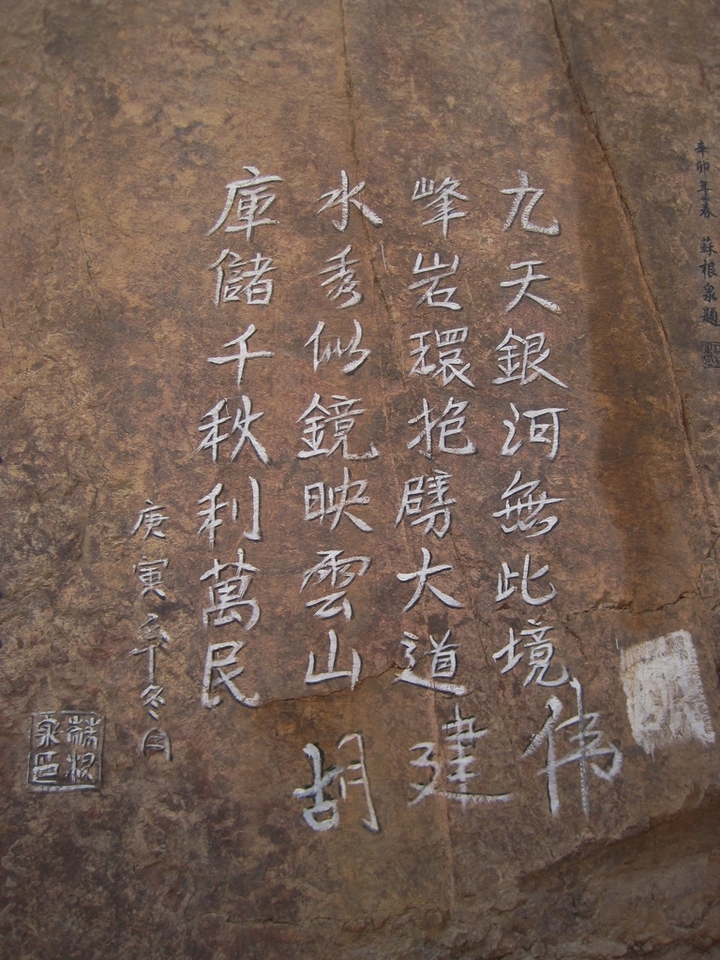 辛卯年春 蘇根泉題
九天銀河無此境
峰岩環抱劈大道
水秀似鏡映雲山
庫儲千秋利萬民
庚寅年冬月
蘇根泉印
胡建伟